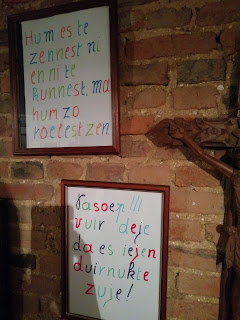 Hum es te
zennest ni
en ni te
kunnest, ma
hum zo
roelest zen
Pasoep!!!
vuir deje
da es iejen
duirnukte
zuje!